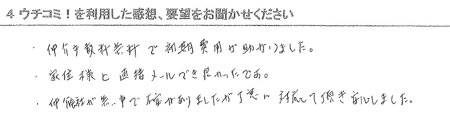 4 ウチコミ！を利用した感想、要望をお聞かせください
・仲介手数料無料で初期費用が助かりました。
・家主様と直接メールでき良かったです。
・仲介 が 中で ありましたが丁寧に対応して頂きました。